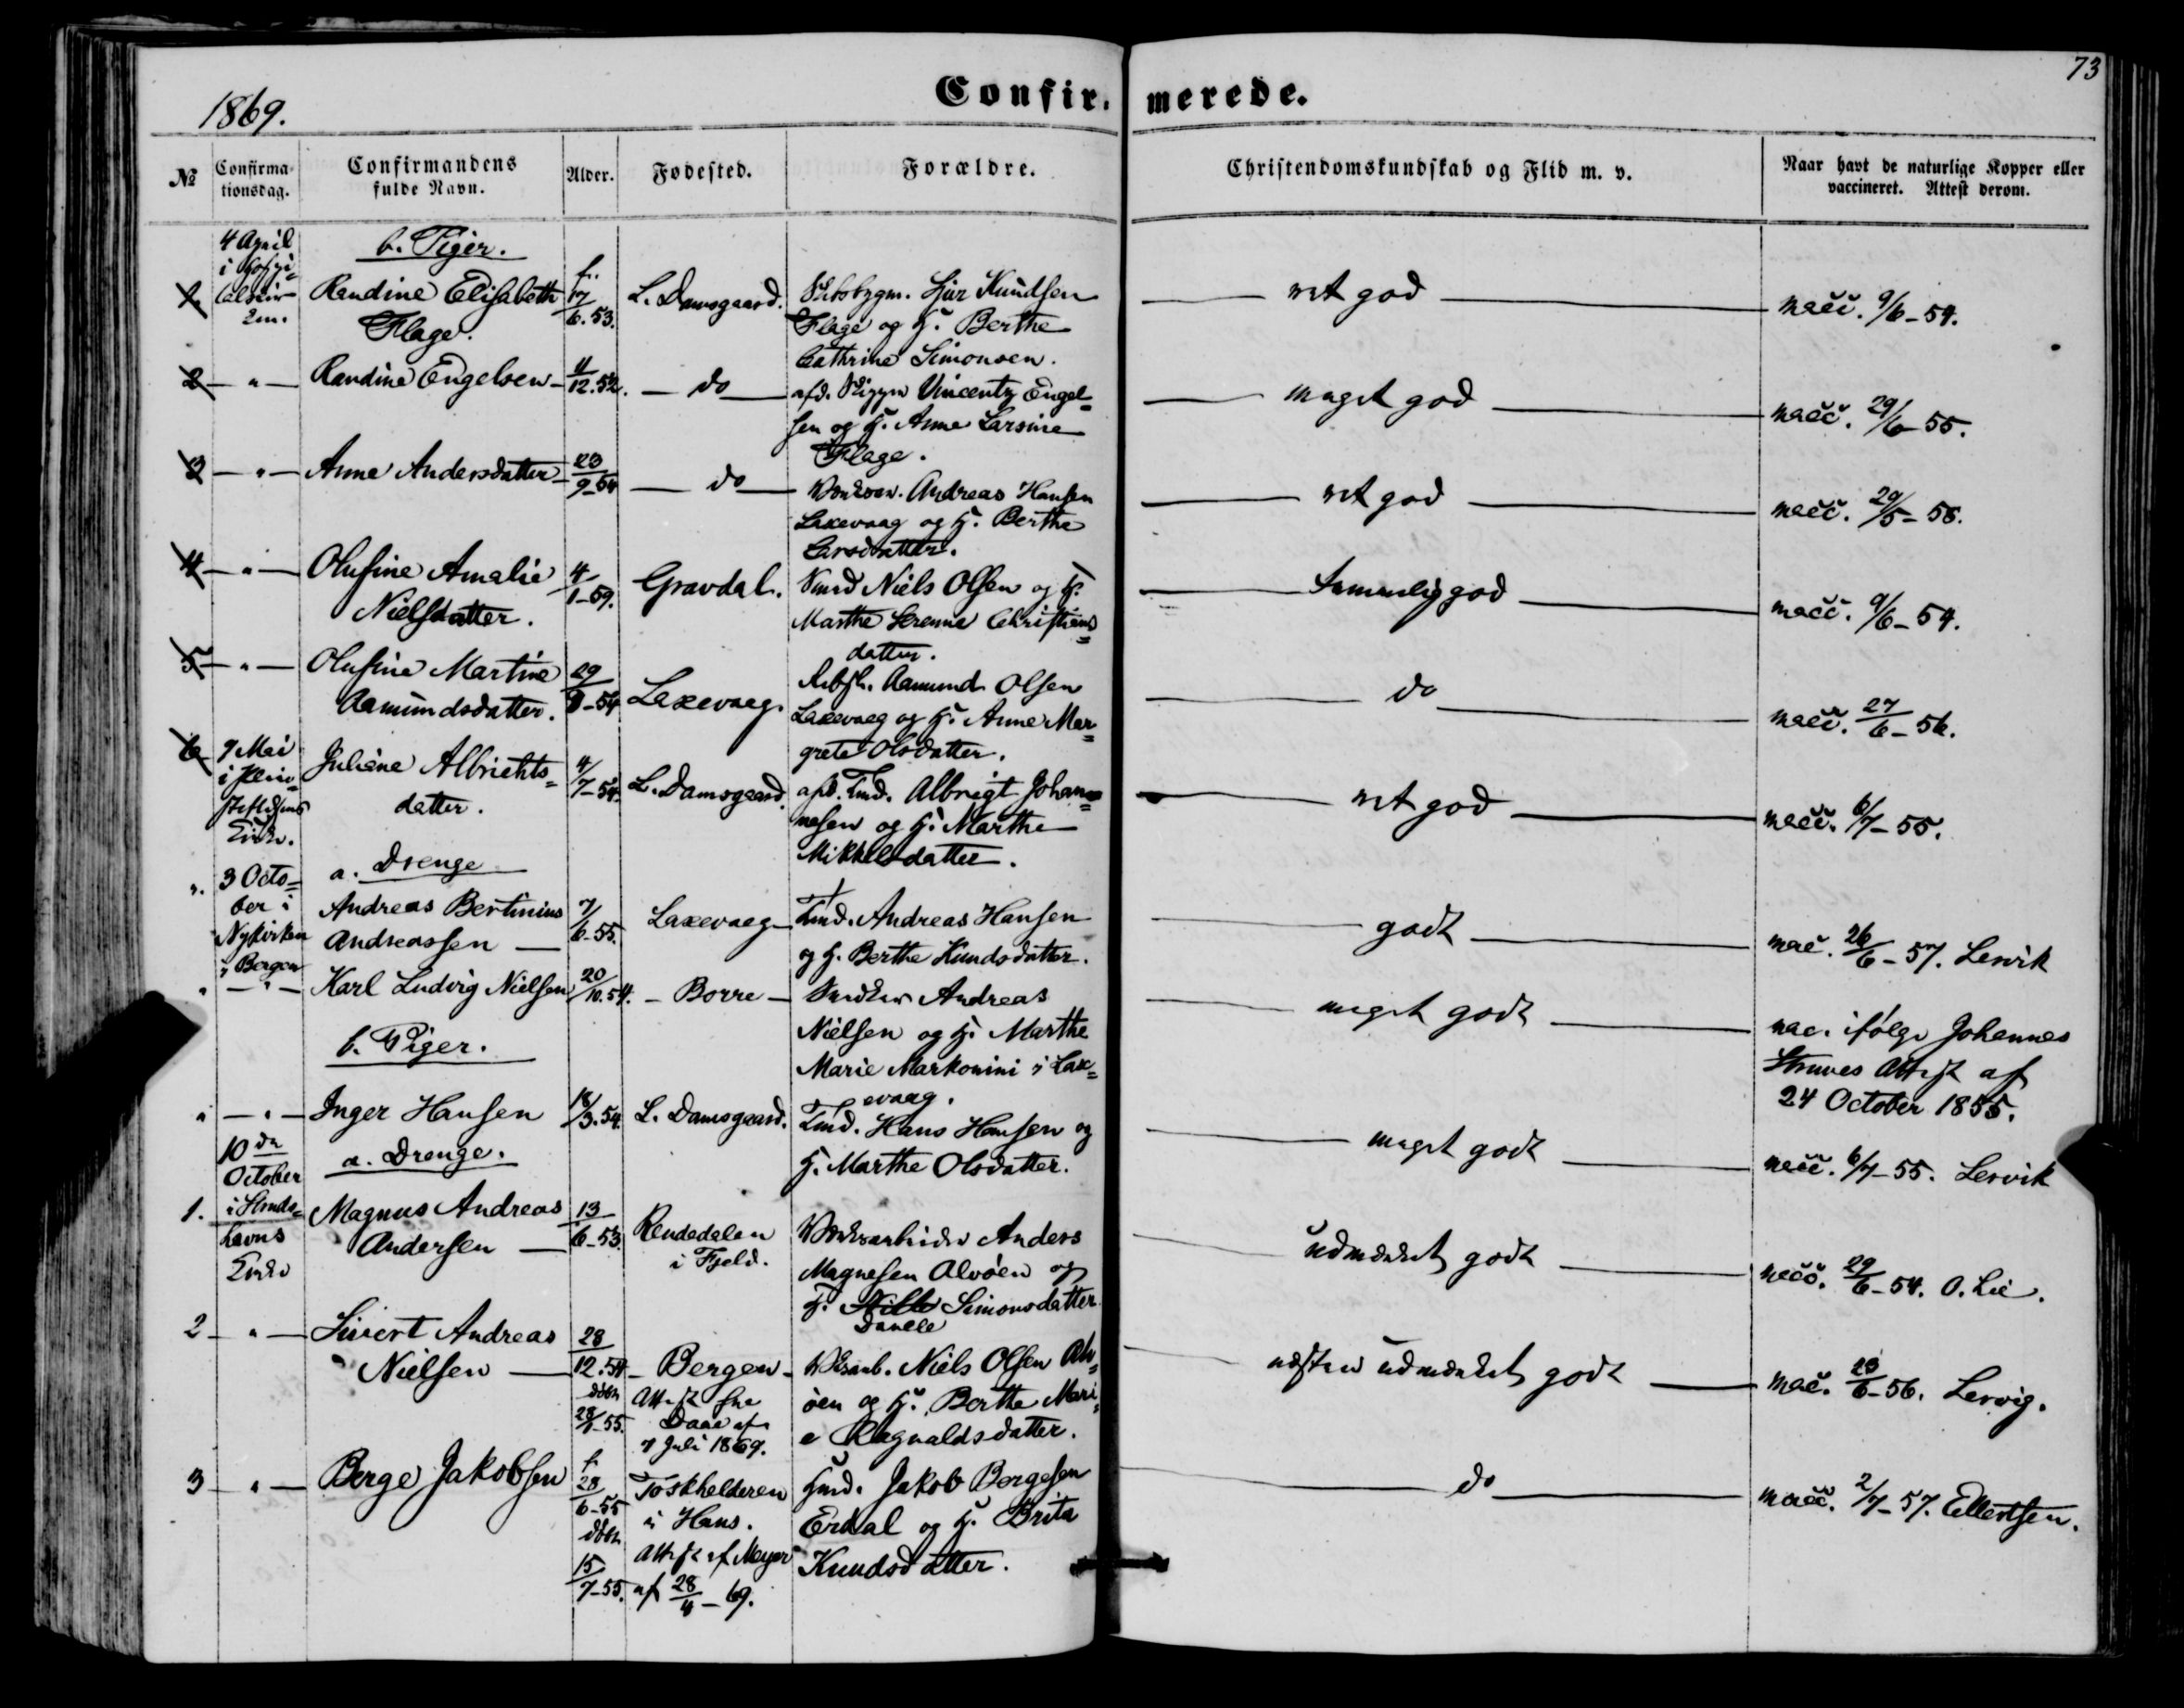 73
1869.
Confir-merede.
№ Confirma-tionsdag. Confirmandens fulde Navn. Alder. Fødested. Forældre. Christendomskundskab og Flid m. v. Naar havt de naturlige Kopper eller vaccineret. Attest derom.
4 April b. Piger.
1. Randine Elisabeth f. 17/6.53. L. Damsgaard. Skibsbygm. Knudsen ret god vacc. 9/6-54.
Flage. Flage og H. Berthe
Cathrine Simonsen.
2 — " — Randine Engelsen 4/12.52. do afd. Vincentz Engel= meget god vacc. 29/6-55.
sen og H. Anne Larsine
Flage.
3 — " — Anne Andersdatter 23/9-54 do Andreas Hansen ret god vacc. 29/5-55.
Laxevaag og H. Berthe
Larsdatter.
4 — " — Olufine Amalie 4/1-59. Gravdal. Smed Niels Olsen og H. Temmelig god vacc. 9/6-54.
Nielsdatter. Marthe Serenne Christians=
datter.
5 — " — Olufine Martine 29/8-54 Laxevaag. Aamund Olsen do vacc. 27/6-56.
Aamundsdatter. Laxevaag og H. Anne Mar=
grete Olsdatter.
6 7 Mai Juliane Albrichts= 4/7-54. L. Damsgaard. afd. Tmd. Albrigt Johan= ret god vacc. 6/7-55.
datter. nesen og H. Marthe
Mikkelsdatter.
a. Drenge
3 Octo=
ber i Andreas Bertinius 7/6-55. Laxevaag Tmd. Andreas Hansen godt vac. 26/6-57. Lervik
Nykirken Andreassen og H. Berthe Knudsdatter.
i Bergen
" — " — Karl Ludvig Nielsen 20/10.54. Borre Andreas meget godt vac. ifølge Johannes
Nielsen og H. Marthe Attest af
b. Piger. Marie Markonini i Lax= 24 October 1855.
evaag.
" — " — Inger Hansen 18/3.54. L. Damsgaard. Tmd. Hans Hansen og meget godt vacc. 6/7-55. Lervik
H. Marthe Olsdatter.
10de October a. Drenge.
1. i Struds= Magnus Andreas 13/6-53. Rendedalen Anders udmærket godt vacc. 29/6-54. O. Lie.
havns Andersen i Fjeld. Magnesen Alvøen og
Kirke H. Simonsdatter
Danele
2 — " — Sivert Andreas 28/12.54 Bergen Niels Olsen Alv= næsten udmærket godt vac. 23/6-56. Lervig.
Nielsen døbt 28/1-55. Attest fra øen og H. Berthe Mari=
Daae af e Ragnaldsdatter.
7 Juli 1869.
3 — " — Berge Jakobsen f. 28/6-55 Toskhelderen Hmd. Jakob Bergesen do vacc. 2/7-57. Ellertsen.
døbt i Haus. Erdal og H. Brita
15/7-55. Attest af Meyer Knudsdatter.
af 28/4-69.